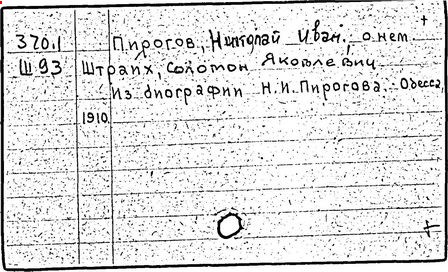 370.1 Пирогов, Николай Иван. о нем.
Ш93 Штрайх, Соломон Яковлевич
Из биографии Н.И.Пирогова. Одесса,
1910.